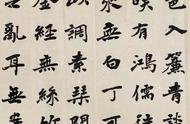 入簾青談
咲有鴻儒往
來無白丁可
以調素琴閱
金經無絲竹
之亂耳無案